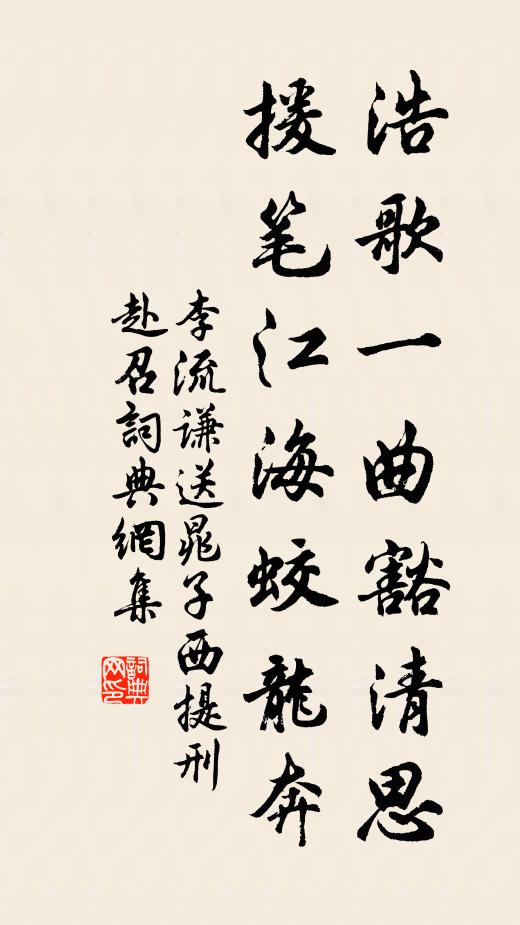 浩歌一曲豁清思
援笔江海蛟龍奔
李流谦送晁子西提刑
赴召詞典網集
詞典网印